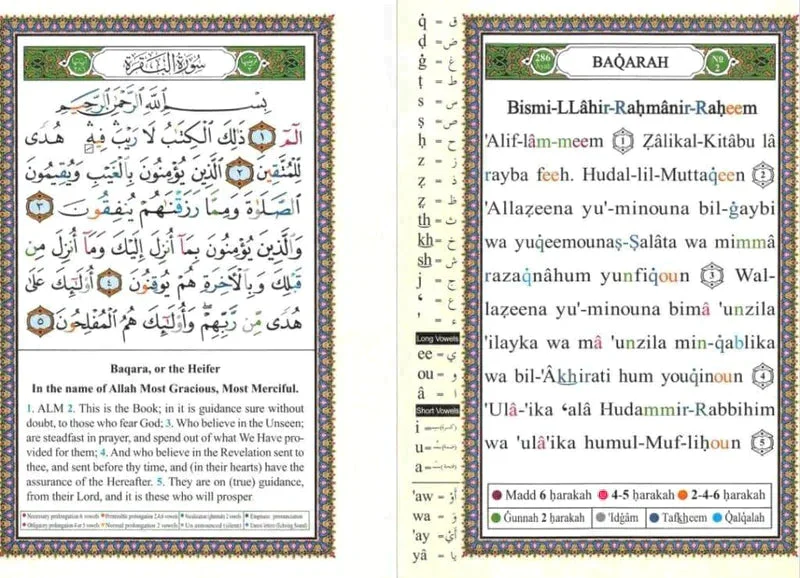 سورة البقرة
بِسْمِ ٱللَّهِ ٱلرَّحْمَٰنِ ٱلرَّحِيمِ
الٓمٓ ١ ذَٰلِكَ ٱلْكِتَٰبُ لَا رَيْبَ ۛ فِيهِ ۛ هُدًى
لِّلْمُتَّقِينَ ٢ ٱلَّذِينَ يُؤْمِنُونَ بِٱلْغَيْبِ وَيُقِيمُونَ
ٱلصَّلَوٰةَ وَمِمَّا رَزَقْنَٰهُمْ يُنفِقُونَ ٣
وَٱلَّذِينَ يُؤْمِنُونَ بِمَآ أُنزِلَ إِلَيْكَ وَمَآ أُنزِلَ مِن
قَبْلِكَ وَبِٱلْءَاخِرَةِ هُمْ يُوقِنُونَ ٤ أُو۟لَٰٓئِكَ عَلَىٰ
هُدًى مِّن رَّبِّهِمْ ۖ وَأُو۟لَٰٓئِكَ هُمُ ٱلْمُفْلِحُونَ ٥
Baqara, or the Heifer
In the name of Allah Most Gracious, Most Merciful.
1. ALM 2. This is the Book; in it is guidance sure without
doubt, to those who fear God; 3. Who believe in the Unseen;
are steadfast in prayer, and spend out of what We Have pro-
vided for them; 4. And who believe in the Revelation sent to
thee, and sent before thy time, and (in their hearts) have the
assurance of the Hereafter. 5. They are on (true) guidance,
from their Lord, and it is these who will prosper
q̇ = ق
ḍ = ض
ġ = غ
ṭ = ط
s = س
ṣ = ص
ḥ = ح
z = ز
ẓ = ذ
ẓ = ظ
th = ث
kh = خ
sh = ش
j = ج
ʿ = ع
' = ء
Long Vowels
ee = ي
ou = و
â = ا
Short Vowels
i =
u =
a =
'aw = أَوْ
wa = وَ
'ay = أَيْ
yâ = يا
286
BAQ̇ARAH
No 2
Bismi-LLâhir-Raḥmânir-Raḥeem
'Alif-lâm-meem 1 Ẓâlikal-Kitâbu lâ
rayba feeh. Hudal-lil-Muttaq̇een 2
'Allaẓeena yu'-minouna bil-ġaybi
wa yuq̇eemounaṣ-Ṣalâta wa mimmâ
razaq̇nâhum yunfiq̇oun 3 Wal-
laẓeena yu'-minouna bimâ 'unzila
'ilayka wa mâ 'unzila min-q̇ablika
wa bil-'Âkhirati hum youq̇inoun 4
'Ulâ-'ika ʿalâ Hudammir-Rabbihim
wa 'ulâ'ika humul-Muf-liḥoun 5
Madd 6 ḥarakah 4-5 ḥarakah 2-4-6 ḥarakah
Ġunnah 2 ḥarakah 'Idġâm Tafkheem Q̇alq̇alah